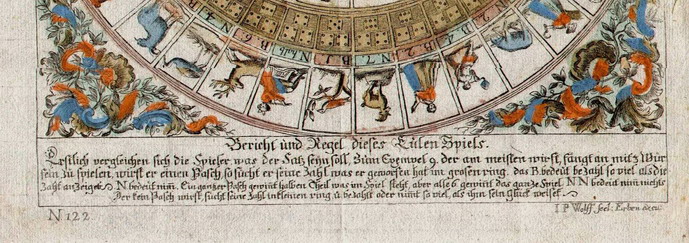 Bericht und Regel dieses Eulen Spiels.
Erstlich vergleichen sich die Spieler was der Satz seyn soll, Zum Exempel 9. der am meisten wirft, fängt an mit 2 Wür
feln zu spielen, wirft er einen Pasch, so sucht er seine Zahl was er geworfen hat im grosen ring. das B. bedeut bezahl so viel als die
Zahl anzeiget. N bedeut nim. Ein ganzer Pasch gewint halben Theil was im Spiel steht, aber alle 6 gewint das ganze Spiel NN bedeut nim nichts
Der kein Pasch wirft, sucht seine Zahl im kleinen ring u. bezahlt oder nimt so viel, als ihm sein Glück weiset.
N 122
I P Wolff seel: Erben exc.